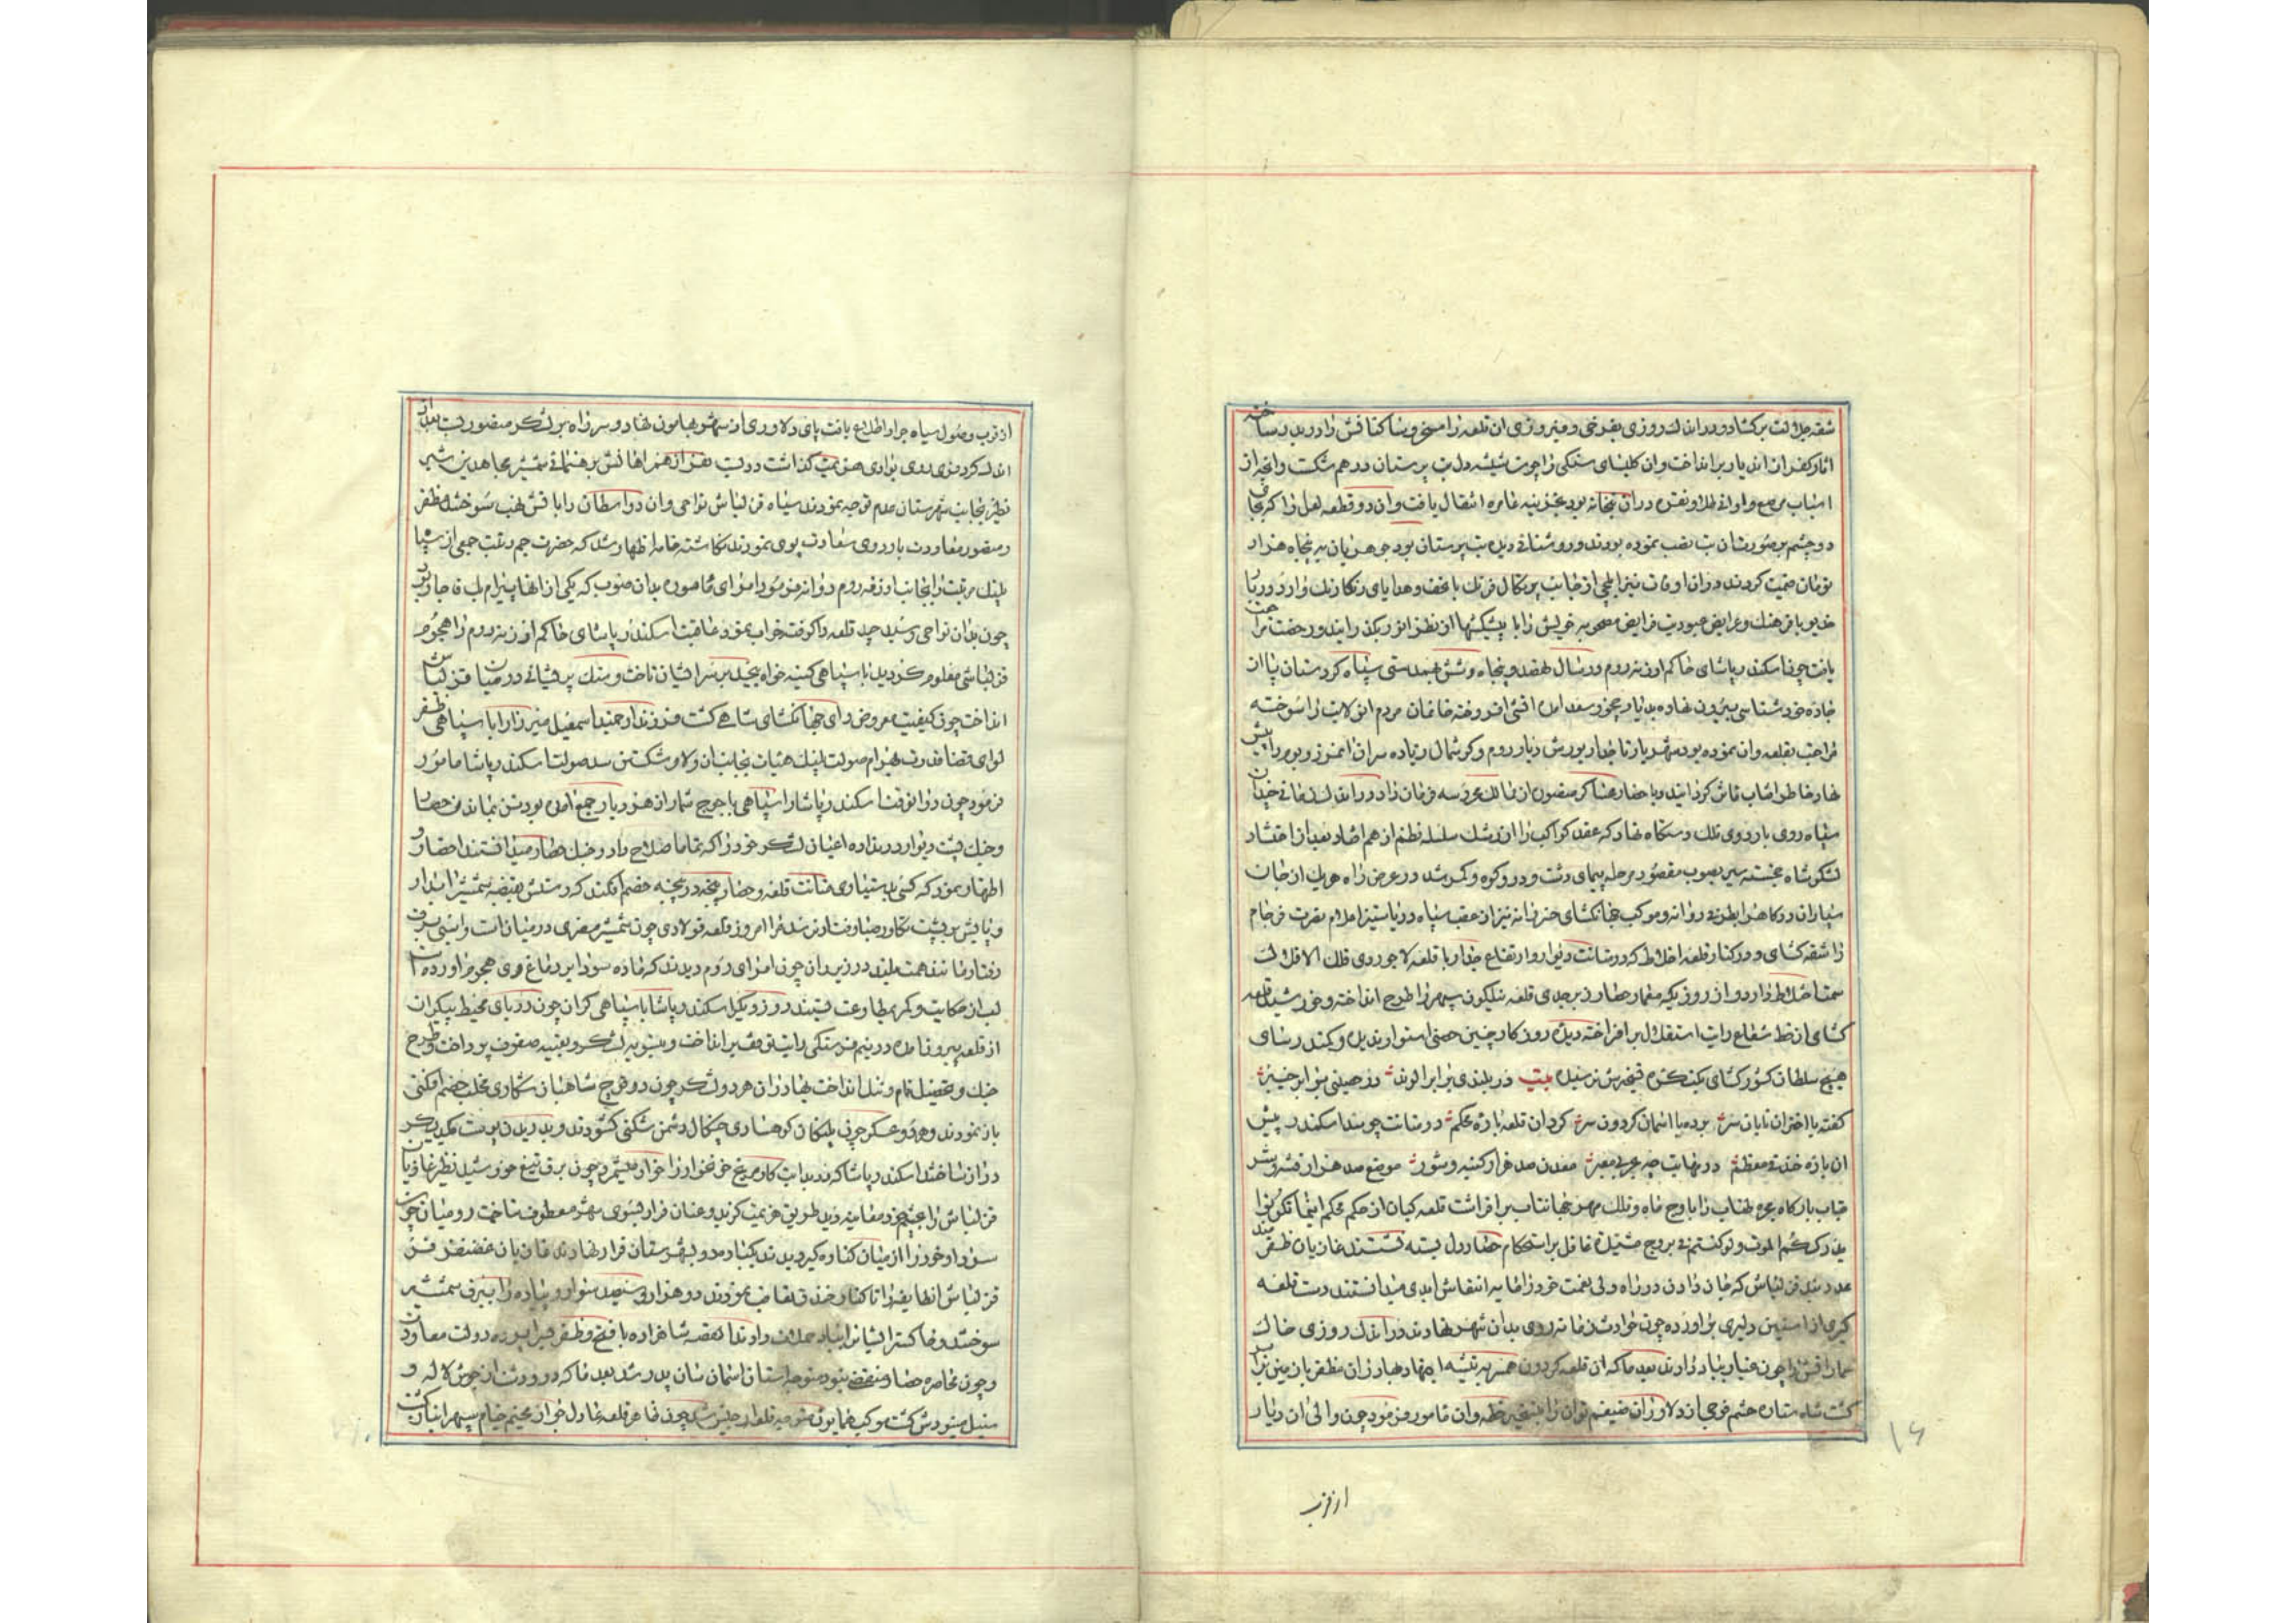 شقه جلالت برکشاد و در اندک روزی بفرخی و فیروزی ان قلعه را مسخر و ساکنانش را در بند ساخته
اثار کفر از ان دیار برانداخت وان کلیسای سنکی را چون شیشه دل بت پرستان در هم شکست وانچه از
اسباب مرصع و اوانی طلا و نقره دران بتخانه بود بخزینه عامره انتقال یافت وان دو قطعه لعل را که بجای
دو چشم بر صورتشان بت نصب نموده بودند و روشنائی دیده بت پرستان بود جوهریان به پنجاه هزار
تومان قیمت کردند دران اوقات نیز ایلچی از جانب پرتکال فرنک با تحف و هدایای رنکارنک وارد دربار
خدیو با فرهنک و عرایض عبودیت فرایض مصحوبه خویش را با پیشکشها از نظر انور بکذرانید و رخصت مراجعت
یافت چون اسکندر پاشای حاکم ارزنه روم در سال نهصد و پنجاه و شش بهمدستی سپاه کردستان پا از
جاده خودشناسی بیرون نهاده بدیار خوی و سعد امده اتشی افروخته خانمان مردم ان ولایت را سوخته
مراجعت بقلعه وان نموده بود شهریار تاجدار یورش دیار روم و کوشمال زیاده سران انمرز و بوم را پیش
نهاد خاطر افتاب تاثر کردانید و باحضار عساکر منصوره از ممالک محروسه فرمان داد در اندک زمانی چندان
سپاه روی باردوی فلک دستکاه نهاد که عقد کواکب را از رشک سلسله نظم از هم افتاد بعد از احتشاد
لشکر شاه خجسته سیر بصوب مقصود مرحله پیمای دشت و در و کوه و کمر شد در عرض راه هریک از خانان
سپاران در کاه را بطرفی روانه و موکب جهانکشای خسروانه نیز از عقب سپاه دریا ستیز اعلام نصرت فرجام
را شقه کشای و در کنار قلعه اخلاط که در متانت دیوار و ارتفاع جدار با قلعه لاجوردی فلک الافلاک لاف
همتا اختلاط دارد و از روزیکه معمار حصار زبرجدی قلعه نیلکون سپهر را طرح انداخته و خورشید قلعه
کشای از خط شعاع رایت استقلال برافراخته دیده روزکار چنین حصنی استوار ندیده و کمند رسای
هیچ سلطان کشور کشای بکنکره تسخیرش نرسیده بیت در بلندی برابر الوند در حصینی بر ابر خیبر
کفته با اختران تابان سر برده با اسمان کردون سر کرد ان قلعه باره محکم در متانت چو سد اسکندر پیش
ان باره خندقی معظم در نهایت چه بحر بی معبر معدن صد هزار کینه و شور موضع صد هزار فتنه و شر
قباب بارکاه مجره طناب را باوج ماه و فلک مهر جهانتاب برافراشت قلعه کیان از حکم محکم اینما تکونوا
یدرککم الموت و لو کنتم فی بروج مشیده غافل بر استحکام حصار دل بسته نشستند غازیان ظفرمند
عدد بند قزلباش که جان دادن در راه ولی نعمت خود را مایه انتعاش ابدی میدانستند دست قلعه
کیری از استین دلیری براورده چون حوادث زمانه روی بدان شهر نهادند در اندک روزی خاک
عماراتش را چون غبار بباد دادند بعد ما که ان قلعه کردون همسر به تیشه اجتهاد بهادران مظفر با زمین برابر
کشت شاه ستاره حشم فوجی از دلاوران ضیغم توان را بتسخیر خطه وان مامور فرمود چون والی ان دیار
از قرب
۱۶
از قرب وصول سپاه جرار اطلاع یافت پای دلاوری از شهر بهامون نهاد و سر راه بر لشکر منصور بست بعد از
اندک کرد فری روی بوادی هزیمت کذاشت دولت نفر از همراهانش برهنمائی شمشیر مجاهدین شیر
نظیر بجانب شهرستان عدم توجه نمودند سپاه قزلباش نواحی وان و واسطان را باتش نهب سوختند مظفر
و منصور معاودت باردوی سعادت پوی نمودند نکاشته خامه اظهار شد که حضرت جم رتبت جمعی از سپاه
پلنک مرتبت را بجانب ارزنه روم روانه فرمود امرای مامور بدان صوب که یکی از انها بیرام بک قاجار بود
چون بدان نواحی رسید چند قلعه را کوفت خراب نمود عاقبت اسکندر پاشای حاکم ارزنه روم را هجوم
قزلباش معلوم کردید با سپاهی کینه خواه بیخبر بر سر ایشان تاخت و سنک پریشانی در میان قزلباش
انداخت چون کیفیت معروض رای جهانکشای شاهی کشت فرزند ارجمند اسمعیل میرزا را با سپاهی ظفر
لوای قضا قدرت بهرام صولت پلنک هیات بجانب ان ولا و شکستن سد صولت اسکندر پاشا مامور
فرمود چون در انوقت اسکندر پاشا را سپاهی یاجوج شمار از هر دیار جمع امده بود تن بماندن حصار
و جنک پشت دیوار در نداده اعیان لشکر خود را که تماما صلاح را در جنک حصار میدانستند احضار و
اظهار نمود که کسی بدستیاری متانت قلعه و حصار پنجه در پنجه خصم افکند که دستش بقبضه شمشیر ابدار
و پایش بر پشت تکاور صبا رفتار نرسد مرا امروز قلعه فولادی چون شمشیر مصری در میان است و اسبی برق
رفتار مانند همت بلند در زیر ران چون امرای روم دیدند که ماده سودا بر دماغ وی هجوم اورده است
لب از حکایت و کمر بمطاوعت بستند روز دیکر اسکندر پاشا با سپاهی کران چون دریای محیط بیکران
از قلعه بیرون امده در نیم فرسنکی رایت توقف برانداخت و بتسویه لشکر و تعبیه صفوف پرداخت و طرح
جنک و تفصیل تمام و تبل انداخت بهادران هر دو لشکر چون دو فوج شاهبازان شکاری مخلب خصم افکنی
باز نمودند و هر دو عسکر چون پلنکان کوهساری چنکال دشمن شکنی کشودند و بدریدن پوست یکدیکر
دراز ساختند اسکندر پاشا که در بدایت کار مریخ خونخوار را خوار میشمرد چون برق تیغ خورشید نظیر غازیان
قزلباش را بچشم خود معاینه دید طریق هزیمت کزید و عنان فرار بسوی شهر معطوف ساخت رومیان چون
سردار خود را از میان کناره کیر دیدند یکباره رو بشهرستان فرار نهادند غازیان غضنفر فر
قزلباش انطایفه را تا کنار خندق تعاقب نمودند دو هزار و سیصد سوار و پیاده را ببرق شمشیر
سوختند و خاکستر ایشانرا بباد هلاک دادند القصه شاهزاده با فتح و ظفر همراه دولت معاودت
و چون محاصره حصار منقضی نبود متوجه استان اسمان سان پدر شد بعد ما که در و دشت از جوش لاله و
سنبل مینو وش کشت موکب همایون متوجه قلعه ارجیش شد چون ظاهر قلعه عادل جواز مخیم خیام سپهر اثار کشت